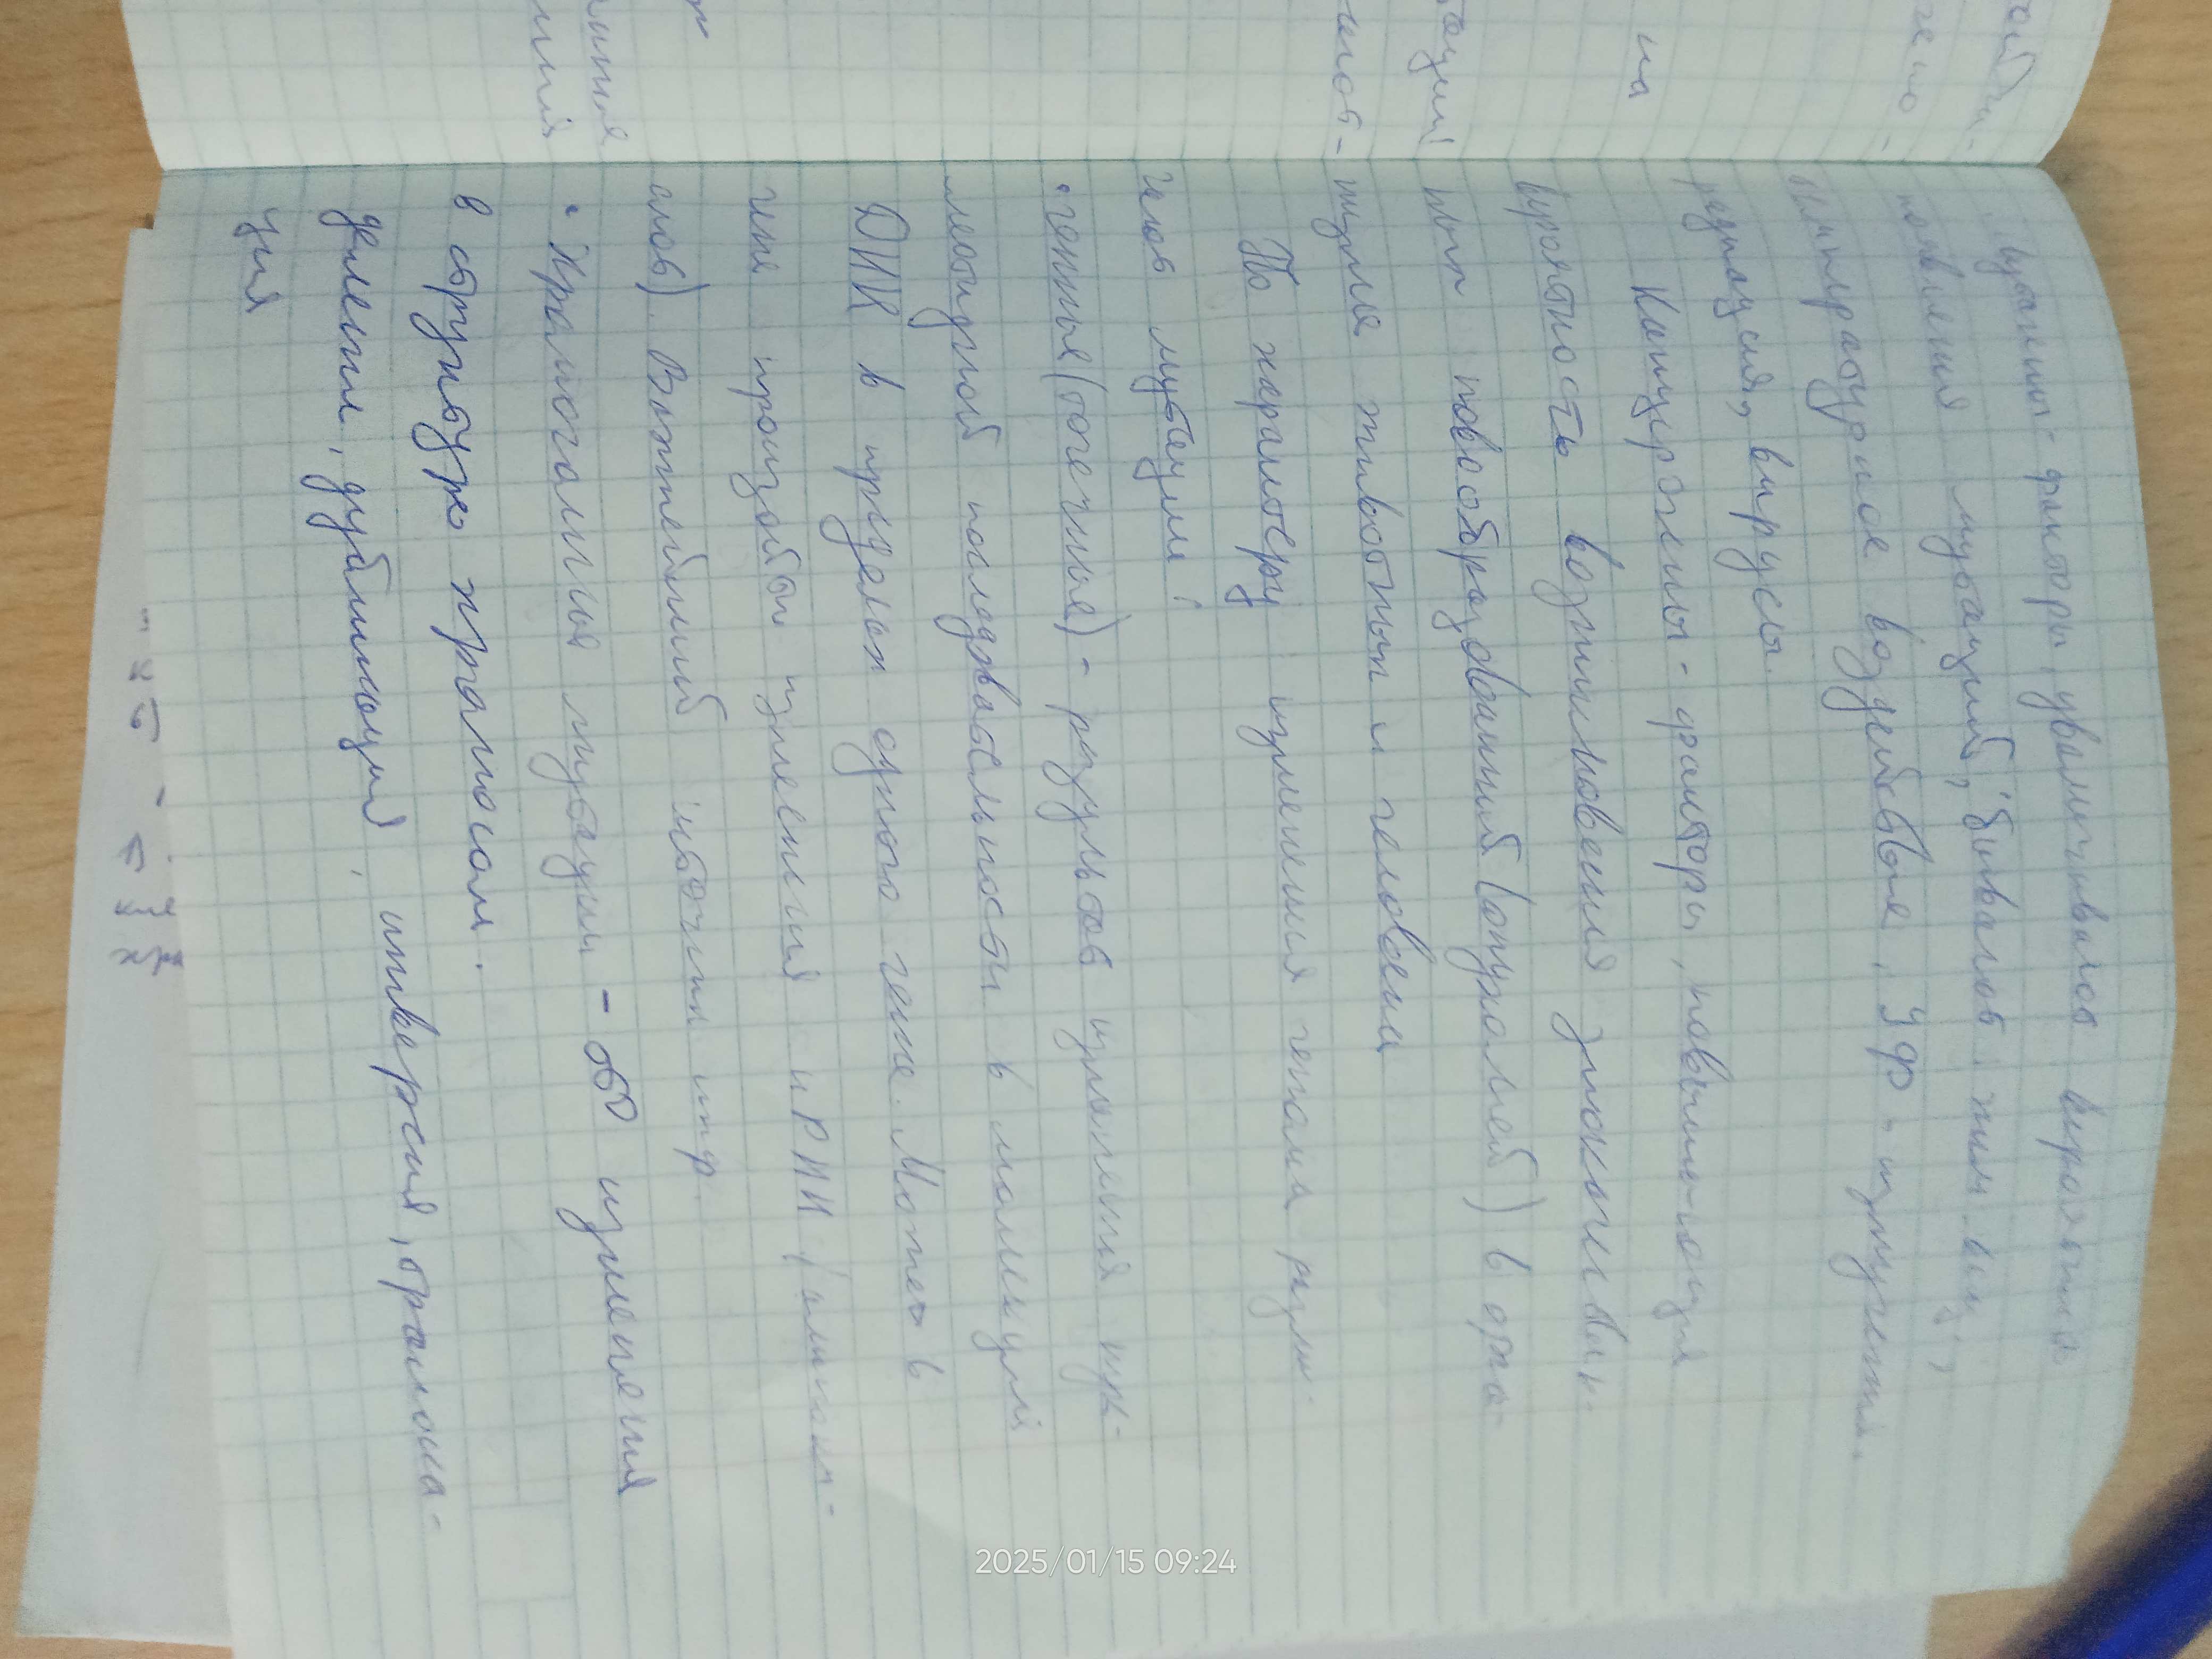 Мутагены - факторы, увеличивают вероятность
появления мутаций, бывают: хим. вещ.,
температурное воздействие, УФ - излучения.
радиация, вирусы.
Канцерогены - факторы, повышающая
вероятность возникновения злокачествен-
ных новообразований (опухолей) в орга-
низме животных и человека
По характеру изменения генома разли-
чают мутации:
• генные (точечные) - результат изменения нук-
леотидной последовательности в молекуле
ДНК в пределах одного гена. Может в
гене произойти изменения иРНК (амином-
слов). Важнейший источник изпр.
• Хромосомные мутации - это изменения
в структуре хромосом.
делении, дубликация, инверсия, транслока-
ция
на
2025/01/15 09:24